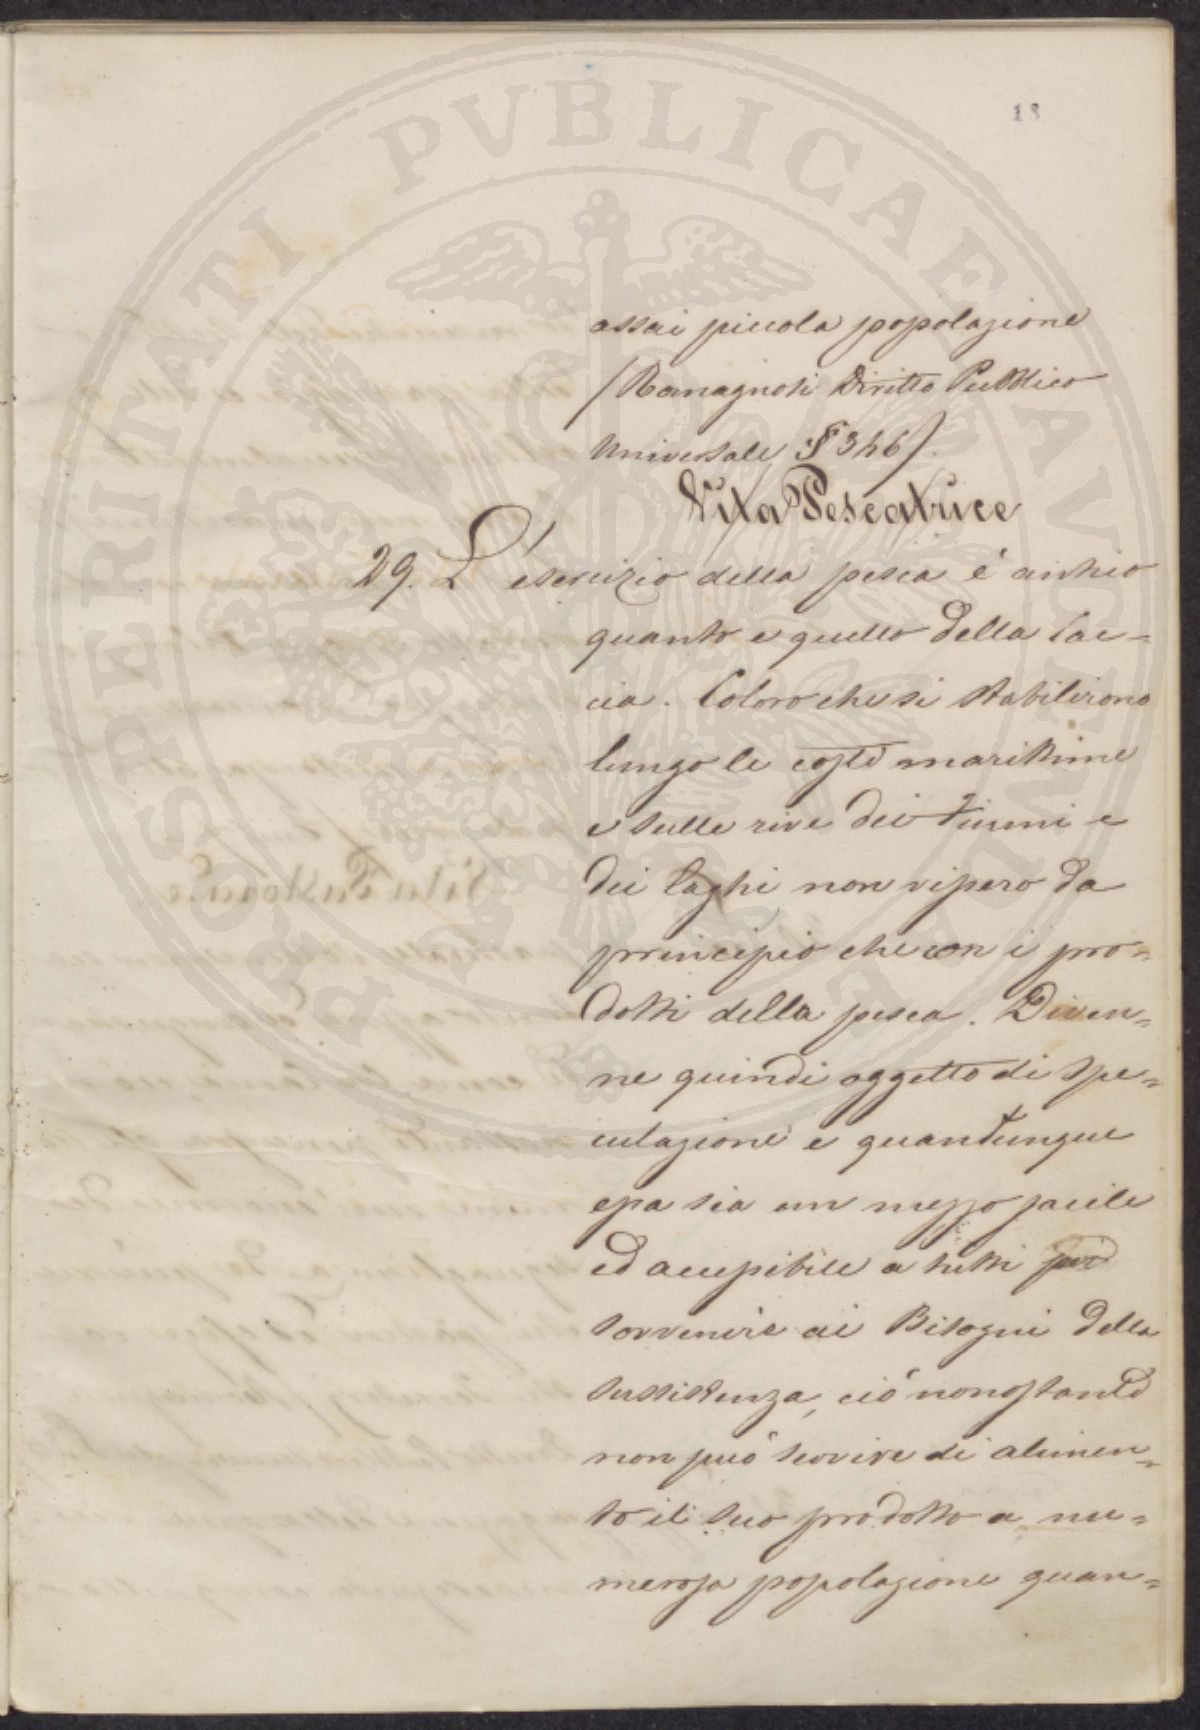 18
PROSPERITATI PVBLICAE AVGENDAE
assai piccola popolazione
(Romagnosi Diritto Pubblico
Universale § 346).
Vita Pescatrice
29. L'esercizio della pesca é antico
quanto e quello della Cac=
cia. Coloro che si stabilirono
lungo le coste marittime
e sulle rive dei Fiumi e
dei laghi non vissero da
principio che con i pro=
dotti della pesca. Diven=
ne quindi oggetto di spe=
culazione e quantunque
essa sia un mezzo facile
ed accessibile a tutti per
sovvenire ai Bisogni della
sussistenza, ció nonostante
non può servire di alimen=
to il suo prodotto a nu=
merosa popolazione quan=